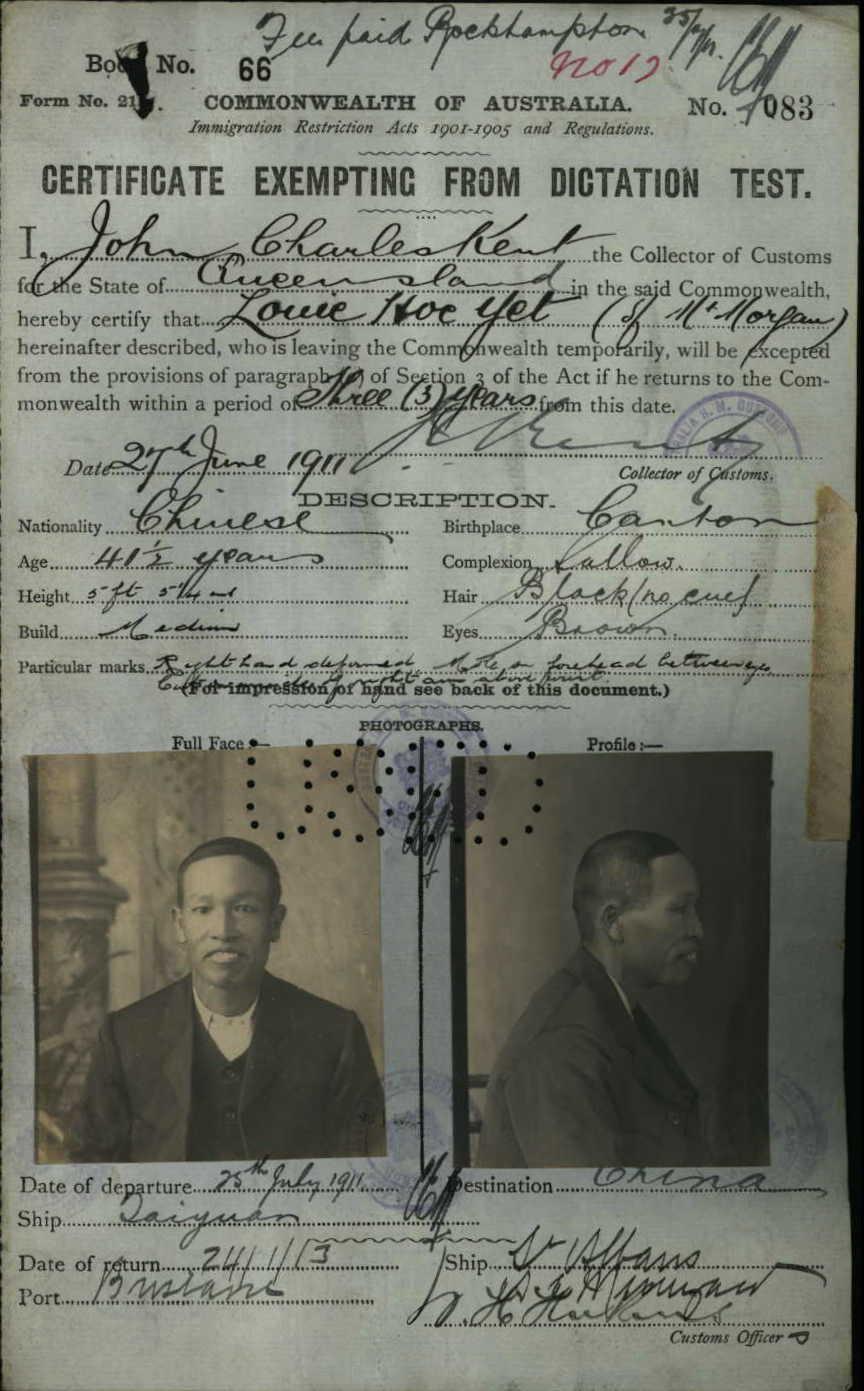 Fee paid Rockhampton 25/7/11.
Book No. 66 No 17
Form No. 21. COMMONWEALTH OF AUSTRALIA. No. 083
Immigration Restriction Acts 1901-1905 and Regulations.
CERTIFICATE EXEMPTING FROM DICTATION TEST.
I, John Charles Kent the Collector of Customs
for the State of Queensland in the said Commonwealth,
hereby certify that Louie Hoe Yet (of Mt Morgan)
hereinafter described, who is leaving the Commonwealth temporarily, will be excepted
from the provisions of paragraph of Section 3 of the Act if he returns to the Com-
monwealth within a period of Three (3) years from this date.
J C Kent
Date 27th June 1911 Collector of Customs.
DESCRIPTION.
Nationality Chinese Birthplace Canton
Age 41½ years Complexion Sallow.
Height 5 ft 5¼ ins Hair Black (no cue)
Build Medium Eyes Brown.
Particular marks Right hand deformed, Mole on forehead between eyes
right arm above wrist.
(For impression of hand see back of this document.)
PHOTOGRAPHS.
Full Face:— Profile:—
Date of departure 25th July 1911 Destination China
Ship Taiyuan
Date of return 24/1/13 Ship St Albans
Port Brisbane
Customs Officer